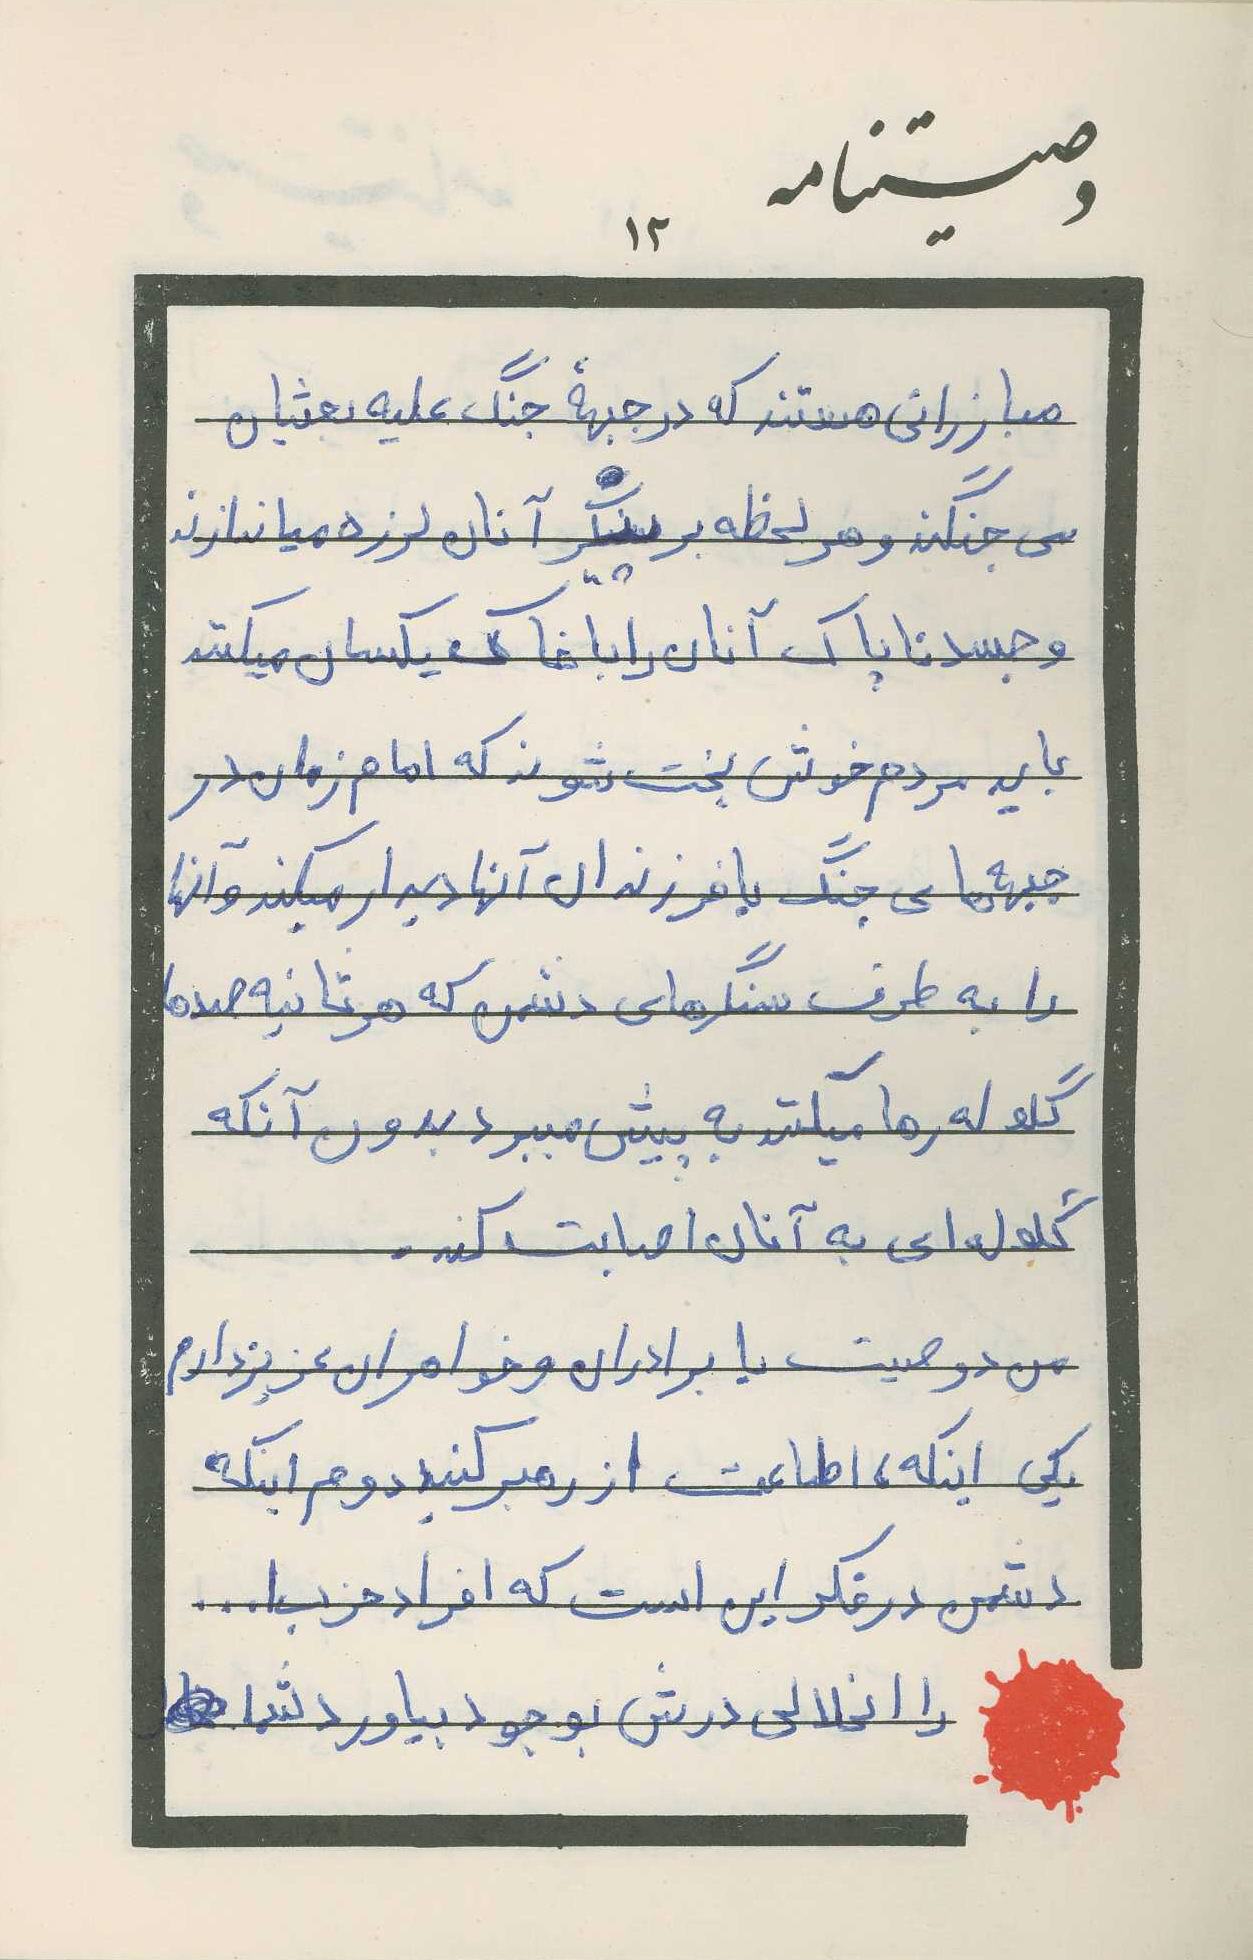 وصیتنامه
۱۲
مبارزانی هستند که در جبههٔ جنگ علیه بعثیان
می جنگند و هر لحظه بر پیکر آنان لرزه میاندازند
و جسد ناپاک آنان را با خاک یکسان میکنند
باید مردم خوش بخت شوند که امام زمان در
جبهه های جنگ با فرزندان آنها دیدار میکند و آنها
را به طرف سنگرهای دشمن که هر ثانیه صدها
گلوله رها میکنند به پیش میبرد بدون آنکه
گلوله ای به آنان اصابت کند.
من دو وصیت با برادران و خواهران عزیز دارم
یکی اینکه، اطاعت از رهبر کنید دوم اینکه
دشمن در فکر این است که افراد حزب ا...
را اخلالی درش بوجود بیاورد شما